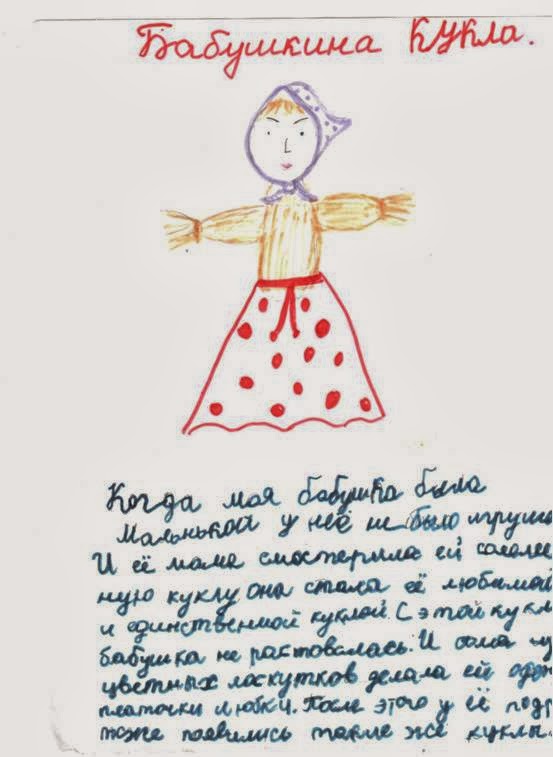 Бабушкина кукла.
Когда моя бабушка была
маленькой у неё не было игруш
И её мама смастерила ей соломе
ную куклу она стала её любимой
и единственной куклой. С этой кукл
бабушка не растовалась. И сама
цветных лоскутков делала ей одеж
платочки и юбки. После этого у её подр
тоже появились такие же куклы.